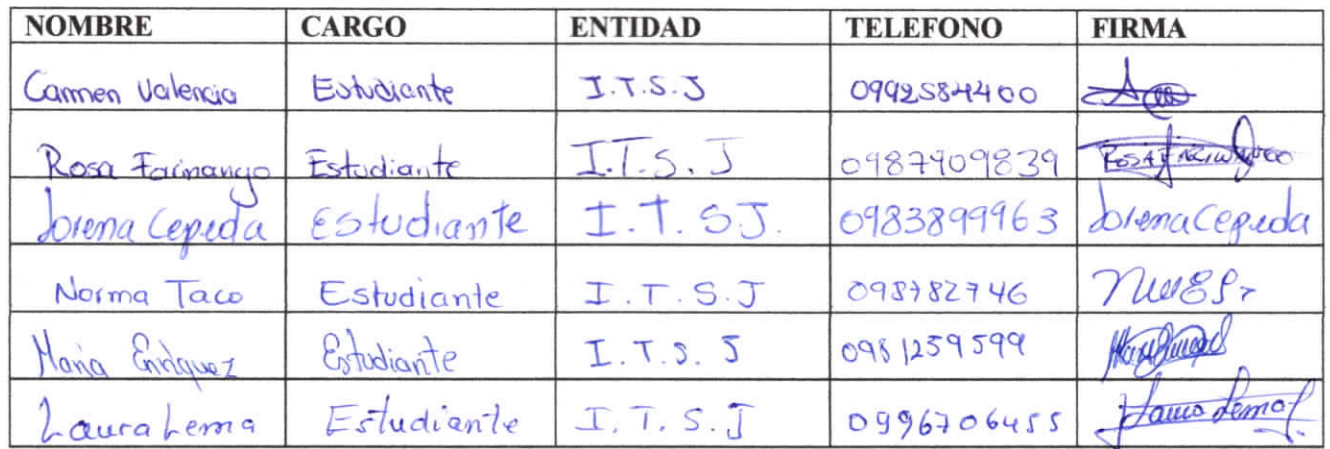 NOMBRE CARGO ENTIDAD TELEFONO FIRMA
Carmen Valencia Estudiante I.T.S.J 0992584400
Rosa Farinango Estudiante I.T.S.J 0987909839
Lorena Cepeda Estudiante I.T.SJ. 0983899963 Lorena Cepeda
Norma Taco Estudiante I.T.S.J 098782746
Maria Enriquez Estudiante I.T.S.J 0981259599
Laura Lema Estudiante I.T.S.J 0996706455 Laura Lema